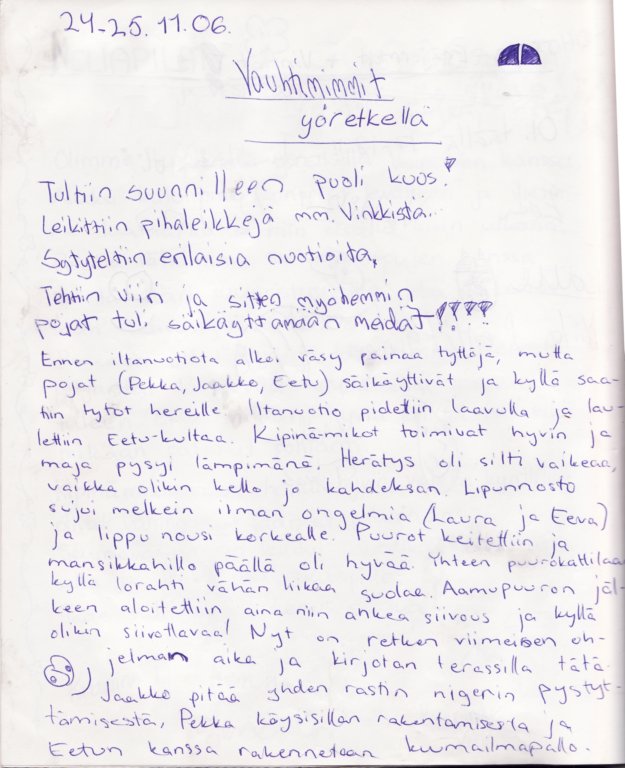 24-25.11.06.
Vauhtimimmit
yöretkellä
Tultiin suunnilleen puoli kuus!
Leikittiin pihaleikkejä mm. Vinkkistä.
Sytyteltiin erilaisia nuotioita,
Tehtiin viiri ja sitten myöhemmin
pojat tuli säikäyttämään meidät!!!!!
Ennen iltanuotiota alkoi väsy painaa tyttöjä, mutta
pojat (Pekka, Jaakko, Eetu) säikäyttivät ja kyllä saa-
tiin tytöt hereille. Iltanuotio pidettiin laavulla ja lau-
lettiin Eetu-kultaa. Kipinä-mikot toimivat hyvin ja
maja pysyi lämpimänä. Herätys oli silti vaikeaa,
vaikka olikin kello jo kahdeksan. Lipunnosto
sujui melkein ilman ongelmia (Laura ja Eeva)
ja lippu nousi korkealle. Puurot keitettiin ja
mansikkahillo päällä oli hyvää. Yhteen puurokattilaan
kyllä lorahti vähän liikaa suolaa. Aamupuuron jäl-
keen aloitettiin aina niin ankea siivous ja kyllä
olikin siivottavaa! Nyt on retken viimeisen oh-
jelman aika ja kirjotan terassilla tätä.
Jaakko pitää yhden rastin nigerin pystyt-
tämisestä, Pekka köysisillan rakentamisesta ja
Eetun kanssa rakennetaan kuumailmapallo.